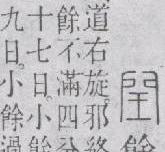 閏餘
道右旋邪
餘不滿四分
十七日。小餘
九日。小餘過